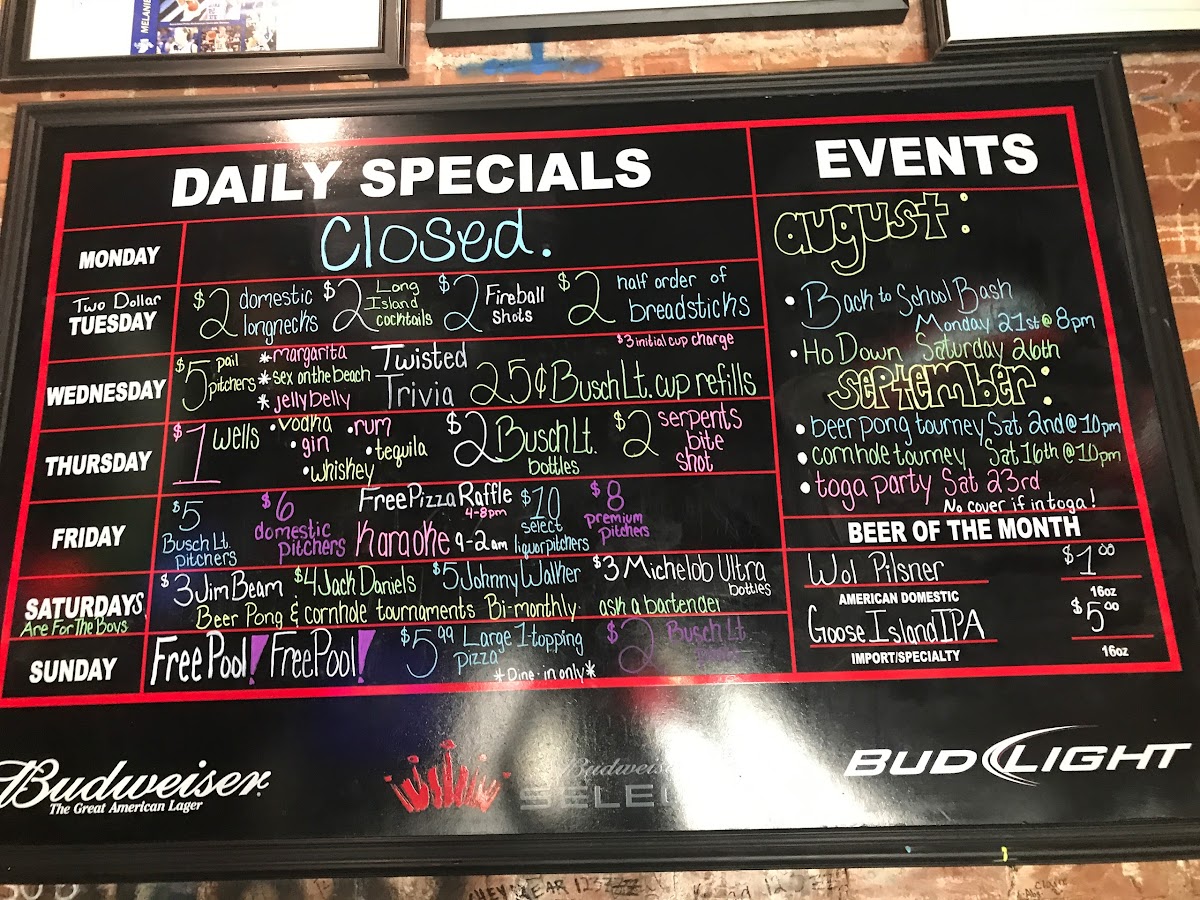 MELANIE
DAILY SPECIALS
MONDAY
Closed.
Two Dollar
TUESDAY
$2 domestic longnecks
$2 Long Island cocktails
$2 Fireball shots
$2 half order of breadsticks
WEDNESDAY
$5 pail pitchers
*margarita
*sex on the beach
*jellybelly
Twisted Trivia
$3 initial cup charge
25¢ Busch Lt. cup refills
THURSDAY
$1 wells
•vodka •rum
•gin •tequila
•whiskey
$2 Busch Lt. bottles
$2 serpents bite shot
FRIDAY
$5 Busch Lt. pitchers
$6 domestic pitchers
Free Pizza Raffle
4-8pm
Karaoke 9-2am
$10 select liquor pitchers
$8 premium pitchers
SATURDAYS
Are For The Boys
$3 Jim Beam $4 Jack Daniels $5 Johnny Walker $3 Michelob Ultra bottles
Beer Pong & cornhole tournaments Bi-monthly ask a bartender
SUNDAY
Free Pool! Free Pool!
$5.99 Large 1-topping pizza
*Dine-in only*
$2 Busch Lt
EVENTS
august:
• Back to School Bash
Monday 21st @ 8pm
• Ho Down Saturday 26th
september:
• beer pong tourney Sat 2nd @ 10pm
• cornhole tourney Sat 16th @ 10pm
• toga party Sat 23rd
No cover if in toga!
BEER OF THE MONTH
Wol Pilsner $1.00
AMERICAN DOMESTIC 16oz
Goose Island IPA $5.00
IMPORT/SPECIALTY 16oz
Budweiser
The Great American Lager
Budweiser
SELECT
BUD LIGHT